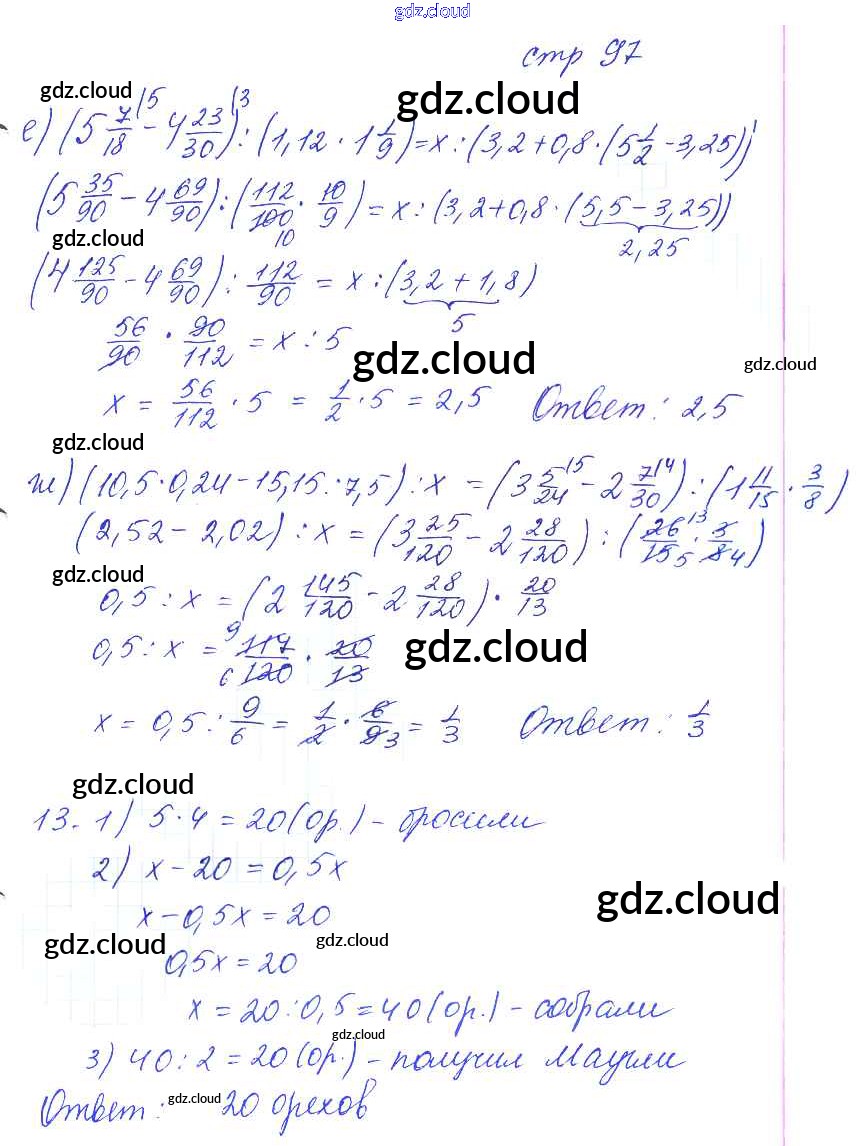 gdz.cloud
стр 97
gdz.cloud gdz.cloud
е) (5 7/18 |5 - 4 23/30 |3) : (1,12 · 1 1/9) = x : (3,2 + 0,8 · (5 1/2 - 3,25))
(5 35/90 - 4 69/90) : (112/100 10 · 10/9) = x : (3,2 + 0,8 · (5,5 - 3,25))
gdz.cloud 2,25
(4 125/90 - 4 69/90) : 112/90 = x : (3,2 + 1,8)
5
56/90 · 90/112 = x : 5
gdz.cloud gdz.cloud
x = 56/112 · 5 = 1/2 · 5 = 2,5 Ответ: 2,5
gdz.cloud
ж) (10,5 · 0,24 - 15,15 : 7,5) : x = (3 5/24 |5 - 2 7/30 |4) : (1 11/15 · 3/8)
(2,52 - 2,02) : x = (3 25/120 - 2 28/120) : (26 13/15 5 · 3/8 4)
gdz.cloud
0,5 : x = (2 145/120 - 2 28/120) · 20/13
0,5 : x = 9 117/6 120 · 20/13 gdz.cloud
x = 0,5 : 9/6 = 1/2 · 6/9 3 = 1/3 Ответ: 1/3
gdz.cloud
13. 1) 5 · 4 = 20 (ор.) - бросили
2) x - 20 = 0,5x
x - 0,5x = 20 gdz.cloud
gdz.cloud gdz.cloud
0,5x = 20
x = 20 : 0,5 = 40 (ор.) - собрали
gdz.cloud
3) 40 : 2 = 20 (ор.) - получил Маугли
Ответ: gdz.cloud 20 орехов